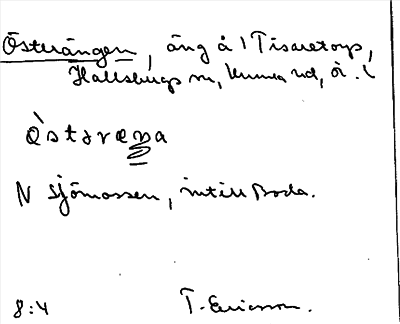 Österängen, äng å 1 Tisaretorp,
Hallsbergs sn, Kumla hd, Ör. l
N Sjömossen, intill Boda.
8:4 T. Ericsson.